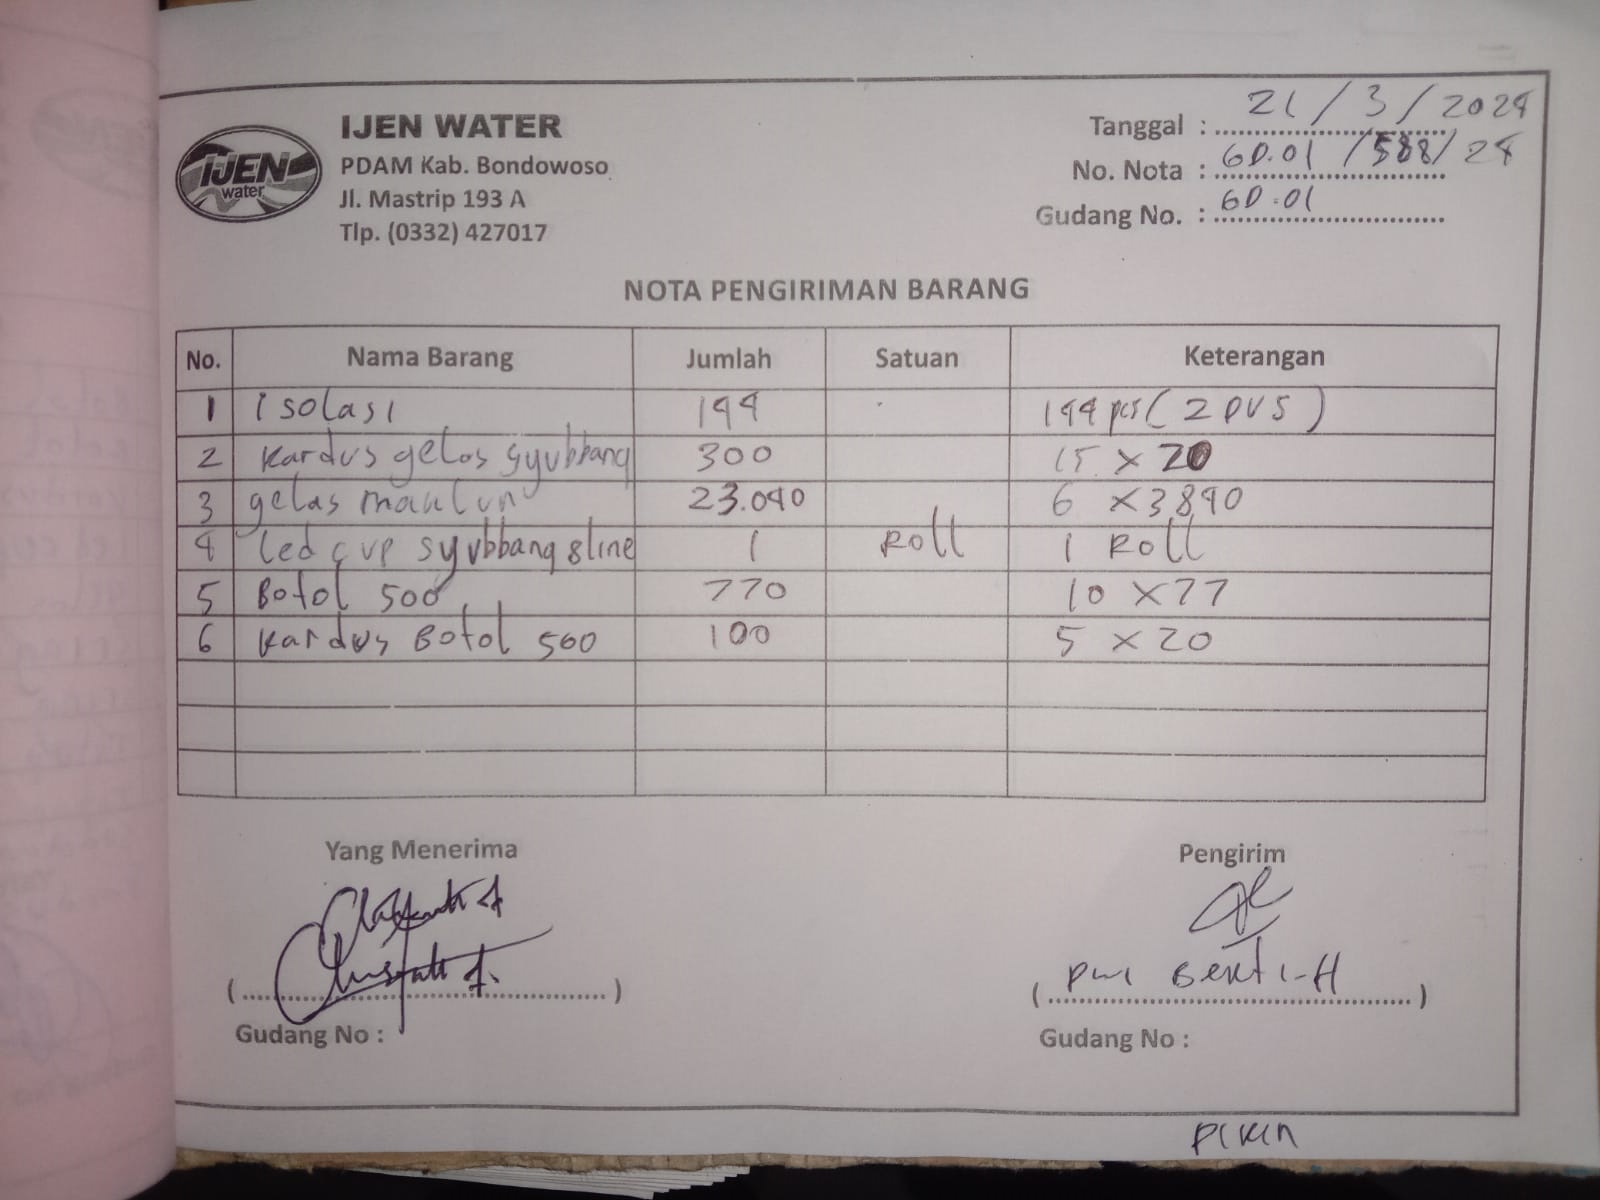 IJEN WATER
PDAM Kab. Bondowoso
Jl. Mastrip 193 A
Tlp. (0332) 427017
IJEN
water
Tanggal : 21 / 3 / 2024
No. Nota : GD.01 /588/ 24
Gudang No. : GD.01
NOTA PENGIRIMAN BARANG
No. Nama Barang Jumlah Satuan Keterangan
1 Isolasi 144 144 pcs ( 2 DUS )
2 Kardus gelas syubbang 300 15 x 20
3 gelas 23.040 6 x 3840
4 Led cup syubbang 8 line 1 Roll 1 Roll
5 Botol 500 770 10 x 77
6 Kardus Botol 500 100 5 x 20
Yang Menerima Pengirim
Dwi Bekti-H
(..............) (..............)
Gudang No : Gudang No :